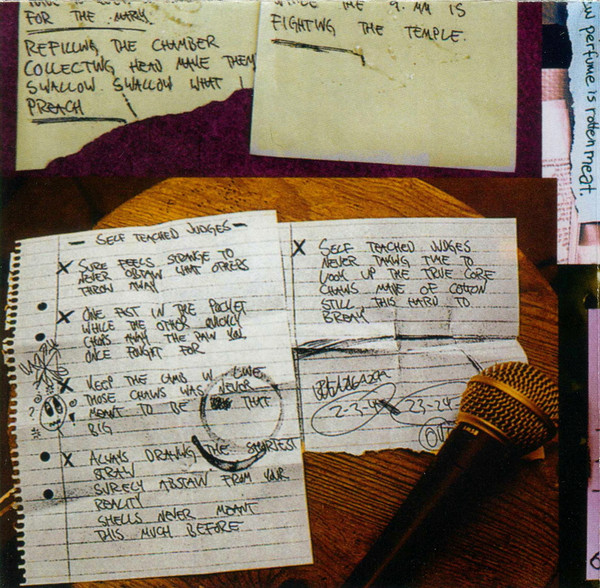 FOR THE MARK.
REFILLING THE CHAMBER
COLLECTING HEAD MAKE THEM
SWALLOW. SWALLOW WHAT I
PREACH
THE 9. MM IS
FIGHTING THE TEMPLE.
perfume is rotten meat.
- SELF TEACHED JUDGES -
X SURE FEELS STRANGE TO
NEVER OBTAIN WHAT OTHERS
THROW AWAY
X ONE FIST IN THE POCKET
WHILE THE OTHER QUICKLY
CHOPS AWAY THE PAIN YOU
ONCE FOUGHT FOR
X KEEP THE LAMB IN LINE
THOSE CHAINS WAS NEVER
MEANT TO BE THAT
BIG
X ALWAYS DRAWING THE SHORTEST
STRAW
SURELY ABSTAIN FROM YOUR
REALITY
SHELLS NEVER MEANT
THIS MUCH BEFORE
X SELF TEACHED JUDGES
NEVER TAKING TIME TO
LOOK UP THE TRUE CORE
CHAINS MADE OF COTTON
STILL THIS HARD TO
BREAK
2-3-4
23-24